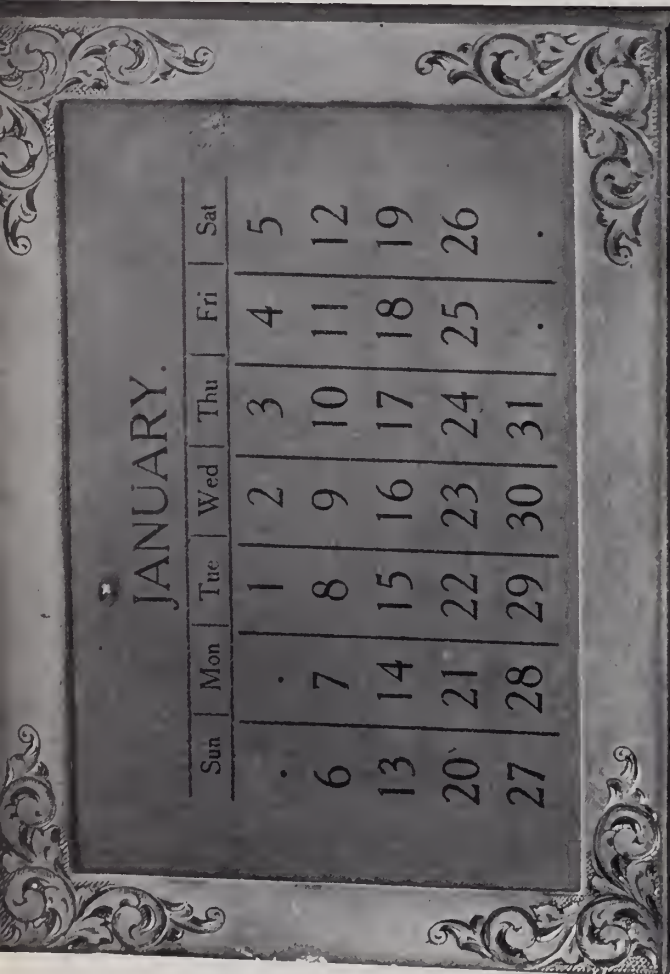 JANUARY.
Sun | Mon | Tue | Wed | Thu | Fri | Sat
. . 1 2 3 4 5
6 7 8 9 10 11 12
13 14 15 16 17 18 19
20 21 22 23 24 25 26
27 28 29 30 31 . .